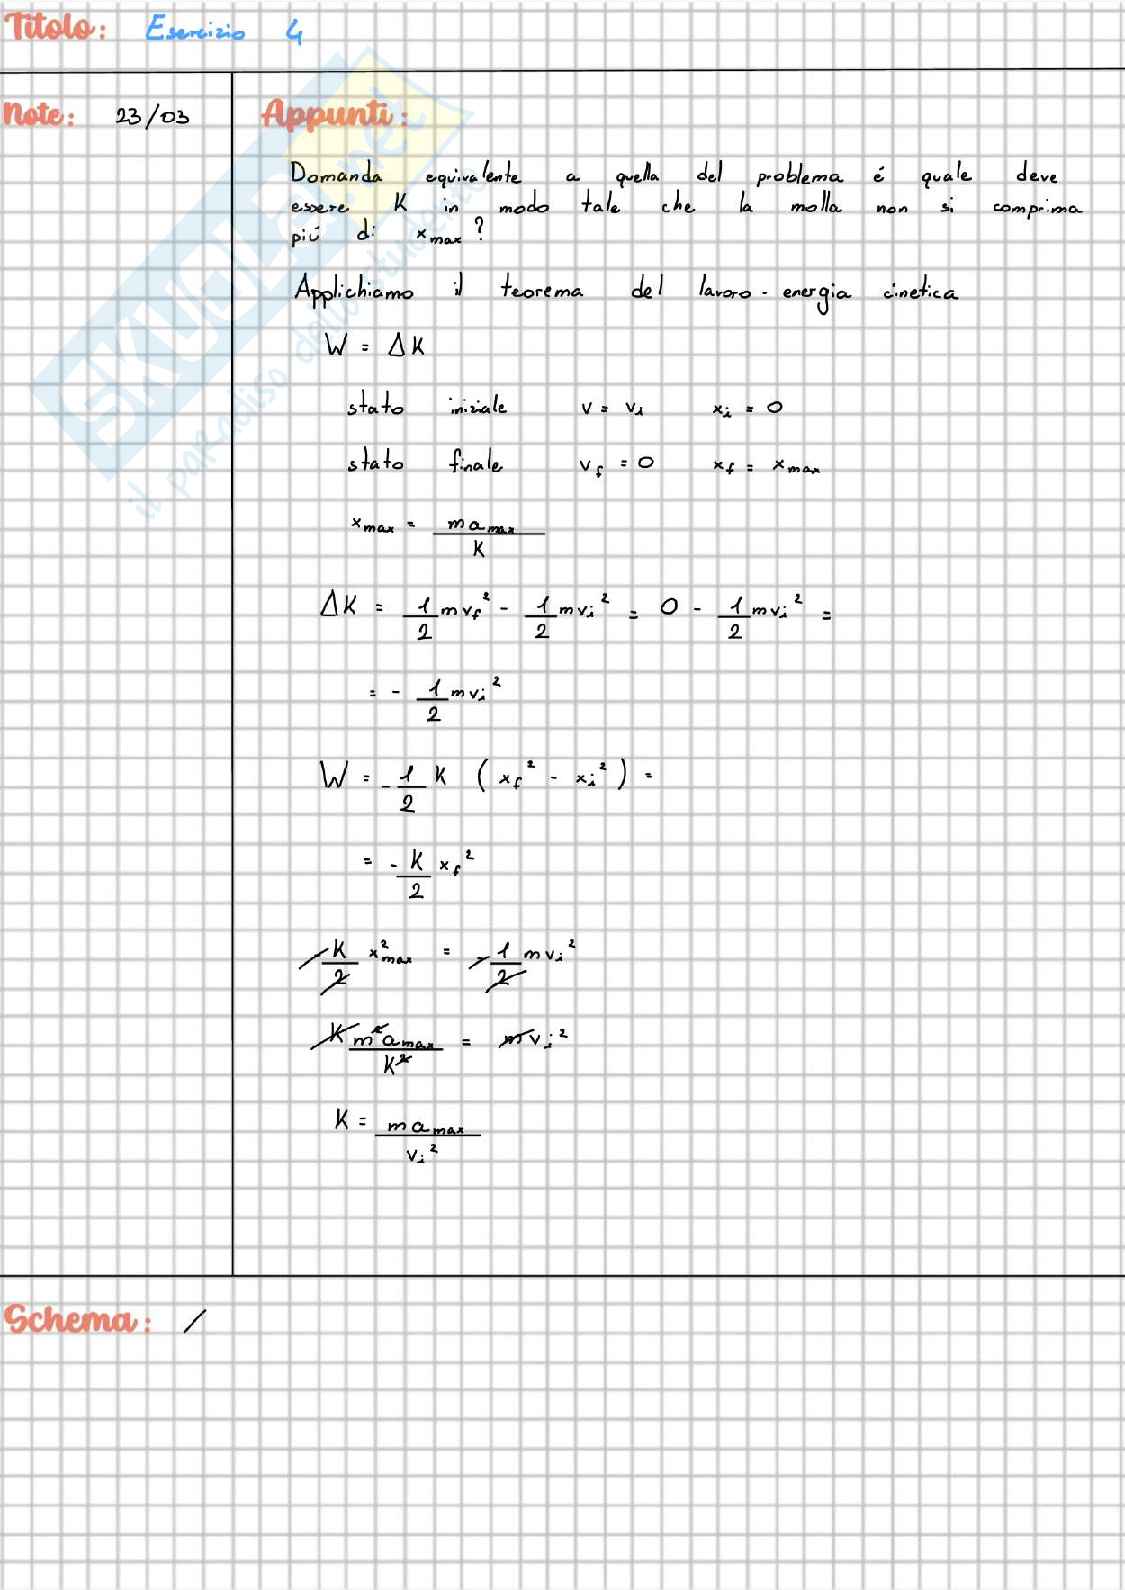 Titolo: Esercizio 4
Note: 23/03
Appunti:
Domanda equivalente a quella del problema é quale deve
essere K in modo tale che la molla non si comprima
piú di x_max ?
Applichiamo il teorema del lavoro - energia cinetica
W = ΔK
stato iniziale v = v_i x_i = 0
stato finale v_f = 0 x_f = x_max
x_max = m a_max / K
ΔK = 1/2 m v_f² - 1/2 m v_i² = 0 - 1/2 m v_i² =
= - 1/2 m v_i²
W = - 1/2 K ( x_f² - x_i² ) =
= - K/2 x_f²
- K/2 x²_max = - 1/2 m v_i²
K m² a_max / K² = m v_i²
K = m a_max / v_i²
Schema: /
SKUOLA.net
il paradiso dello studente